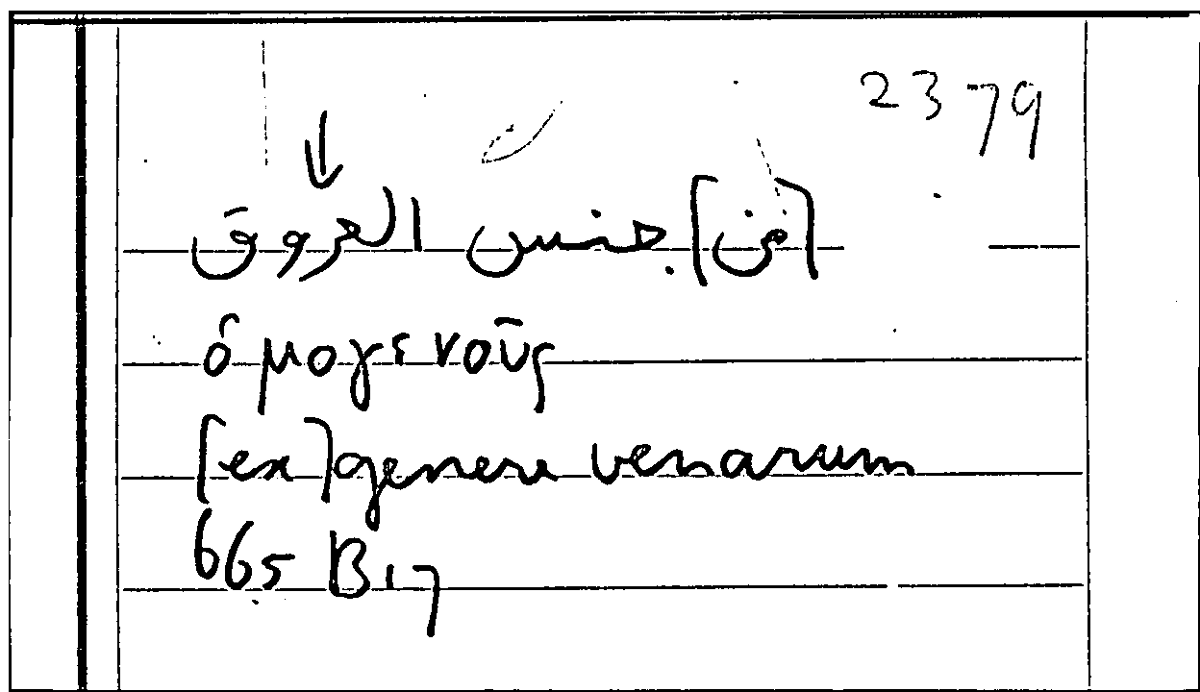 2379
[من] جنس العروق
ὁμογενοῦς
[ex] genere venarum
665 B17